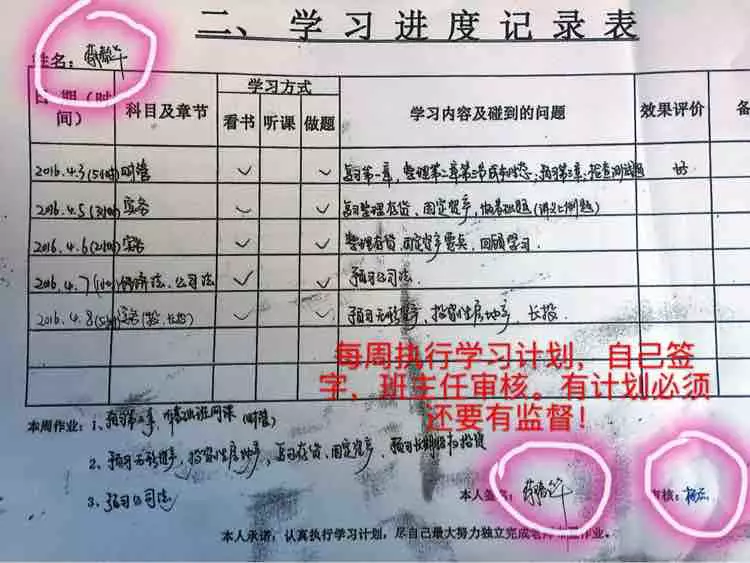 二、学习进度记录表
姓名：
日期(时间) 科目及章节 学习方式 学习内容及碰到的问题 效果评价 备
看书 听课 做题
2016.4.3(5小时) 财管 ✓ ✓ 复习第一章，整理第二章第三节成本性态；预习第三章，检查测试题 好
2016.4.5(3小时) 实务 ✓ ✓ 复习整理存货、固定资产，做基础题(讲义上例题)
2016.4.6(2小时) 实务 ✓ ✓ 整理存货，固定资产要点，回顾学习.
2016.4.7(1小时) 经济法、公司法 ✓ 预习公司法.
2016.4.8(5小时) 实务(投，长投) ✓ ✓ 预习无形资产、投资性房地产、长投
每周执行学习计划，自己签
字，班主任审核。有计划必须
还要有监督！
本周作业：1、预习第二章，听基础班网课 (财管)
2、预习无形资产，投资性房地产，复习存货、固定资产、预习长期股权投资
3、预习公司法
本人签名： 审核：
本人承诺：认真执行学习计划，尽自己最大努力独立完成老师布置作业。